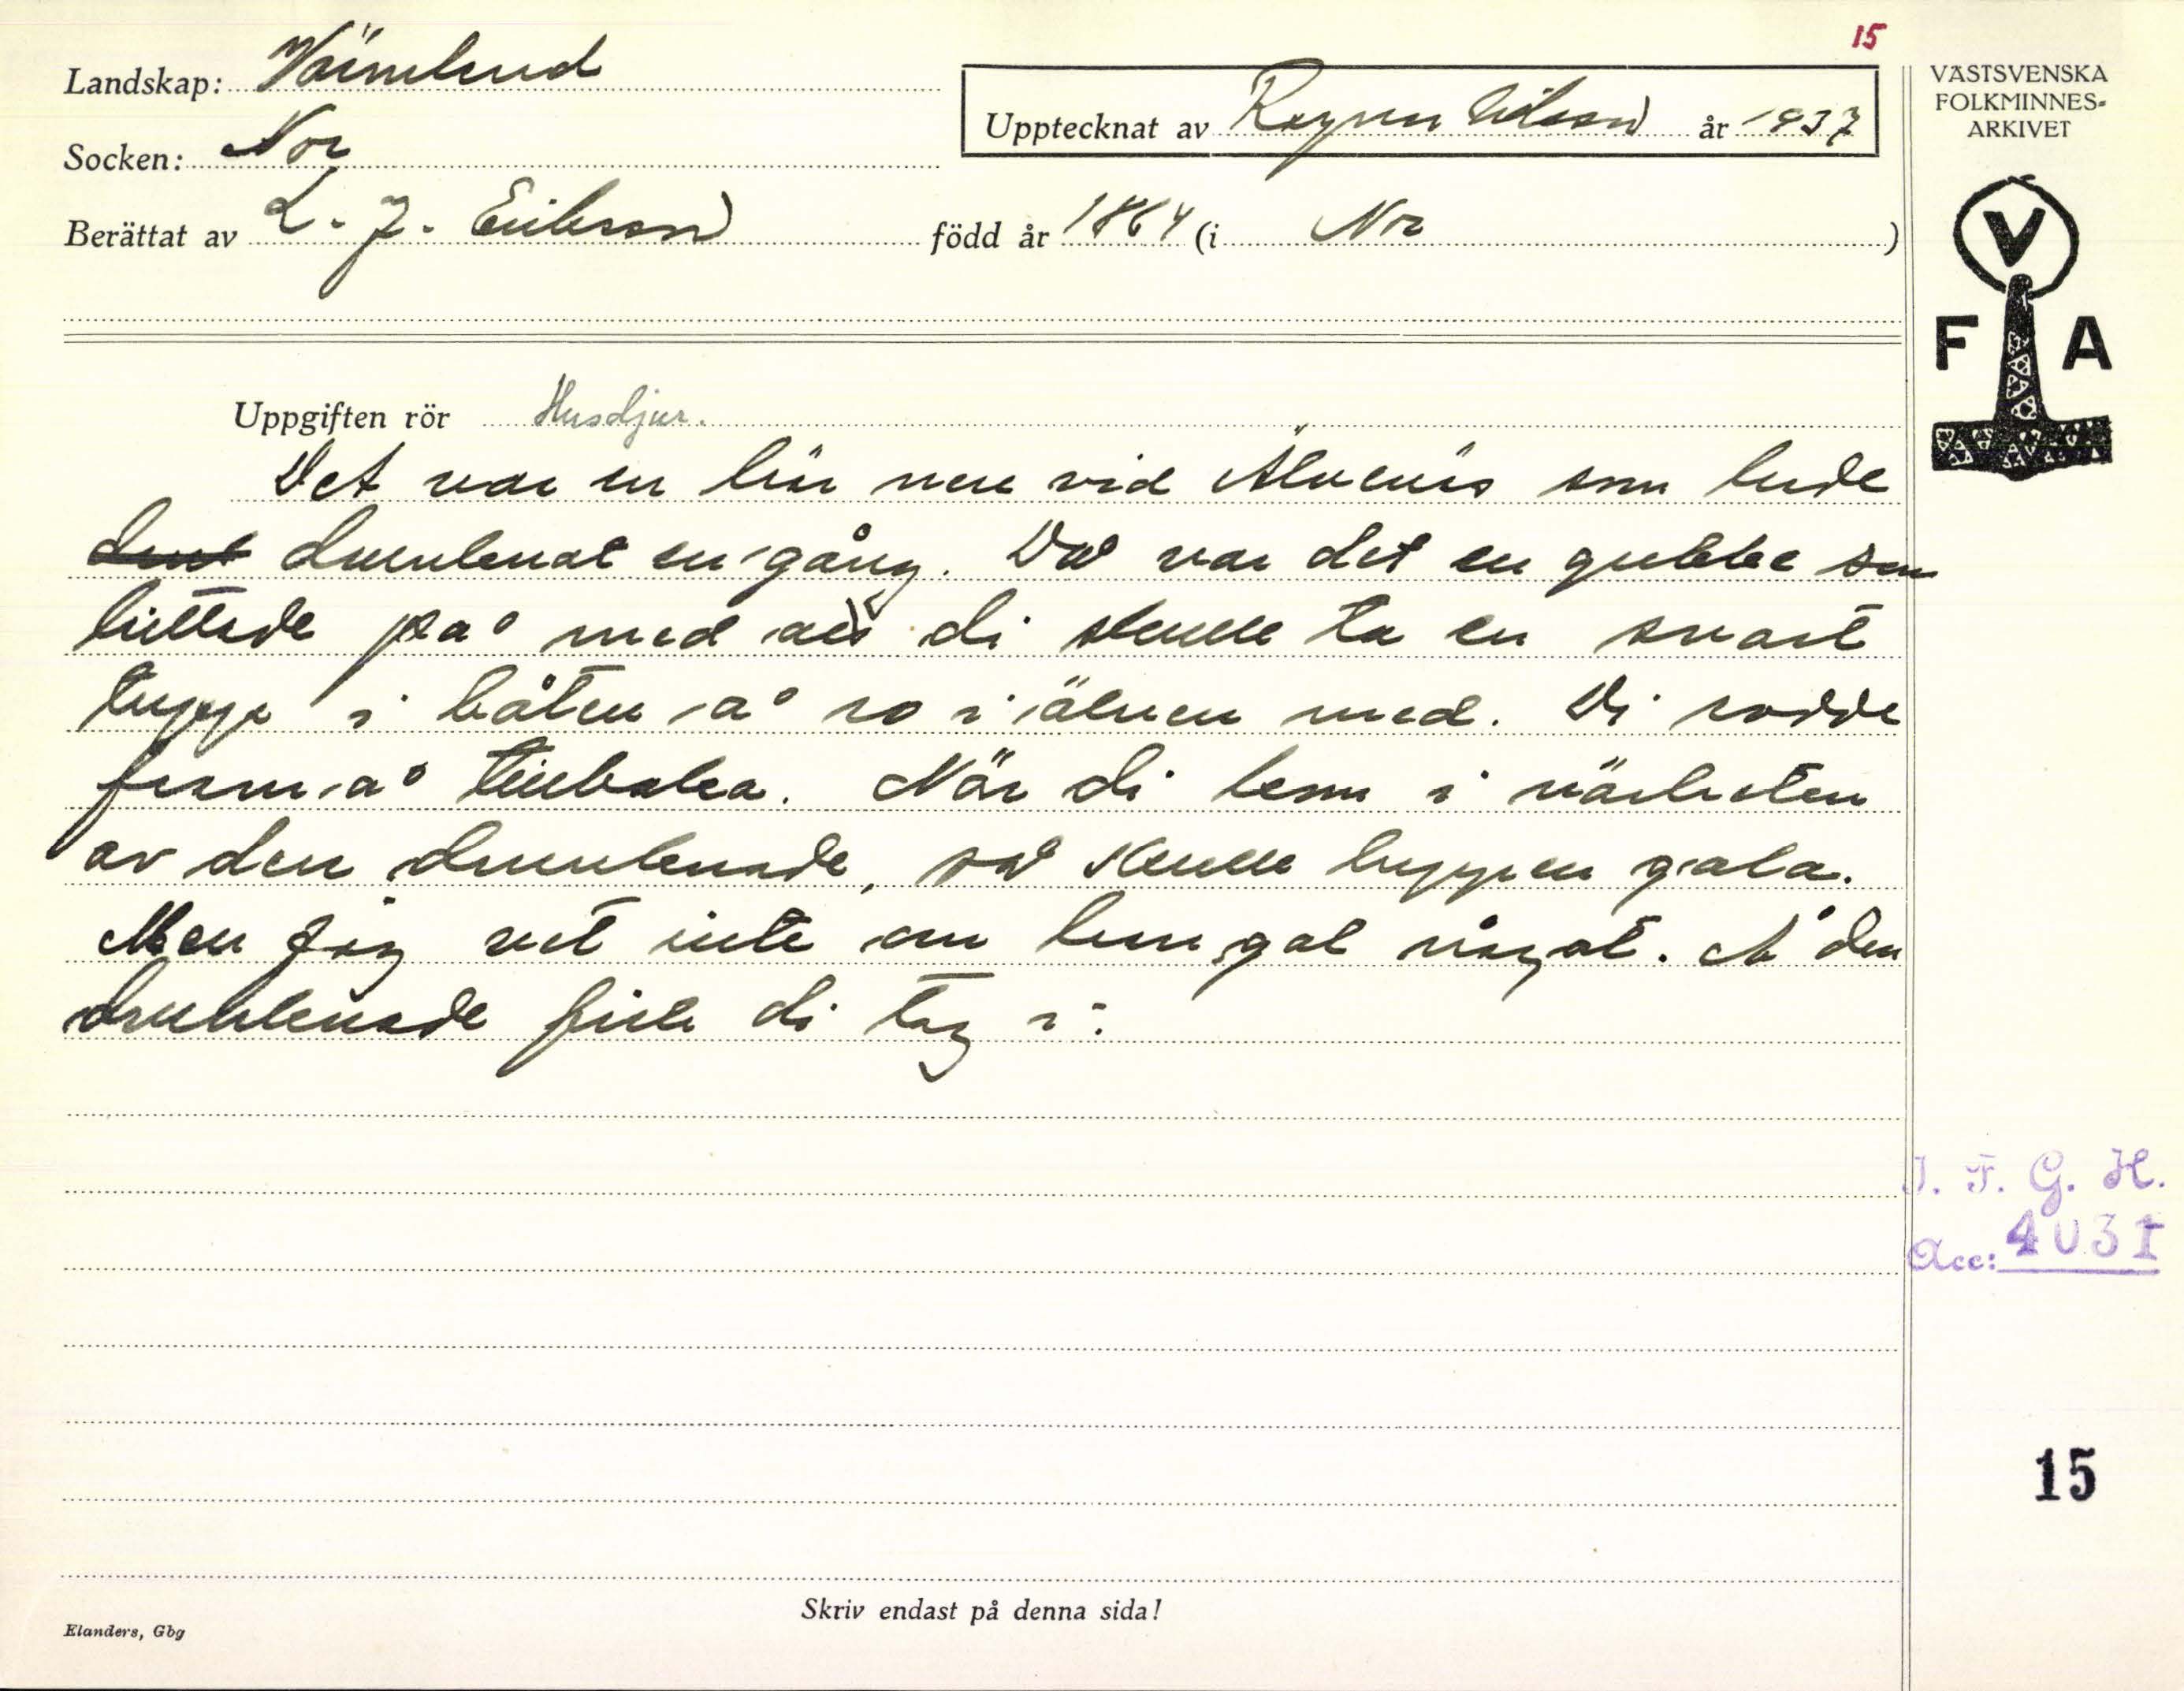 15
Landskap: Värmland
Upptecknat av Ragnar Nilsson år 1937
VÄSTSVENSKA
FOLKMINNES-
ARKIVET
Socken: Nor
Berättat av L. J. Eriksson född år 1864 (i Nor )
V
F A
Uppgiften rör Husdjur.
Det var en här nere vid Älvenäs som hade
drunknat en gång. Då var det en gubbe som
hittade på med att di skulle ta en svart
tupp i båten å ro i älven med. Di rodde
fram å tillbaka. När di kom i närheten
av den drunknade, så skulle tuppen gala.
Men jag vet inte om han gol något. Å den
drunknade fick di tag i.
I. F. G. H.
Acc: 4031
15
Skriv endast på denna sida!
Elanders, Gbg